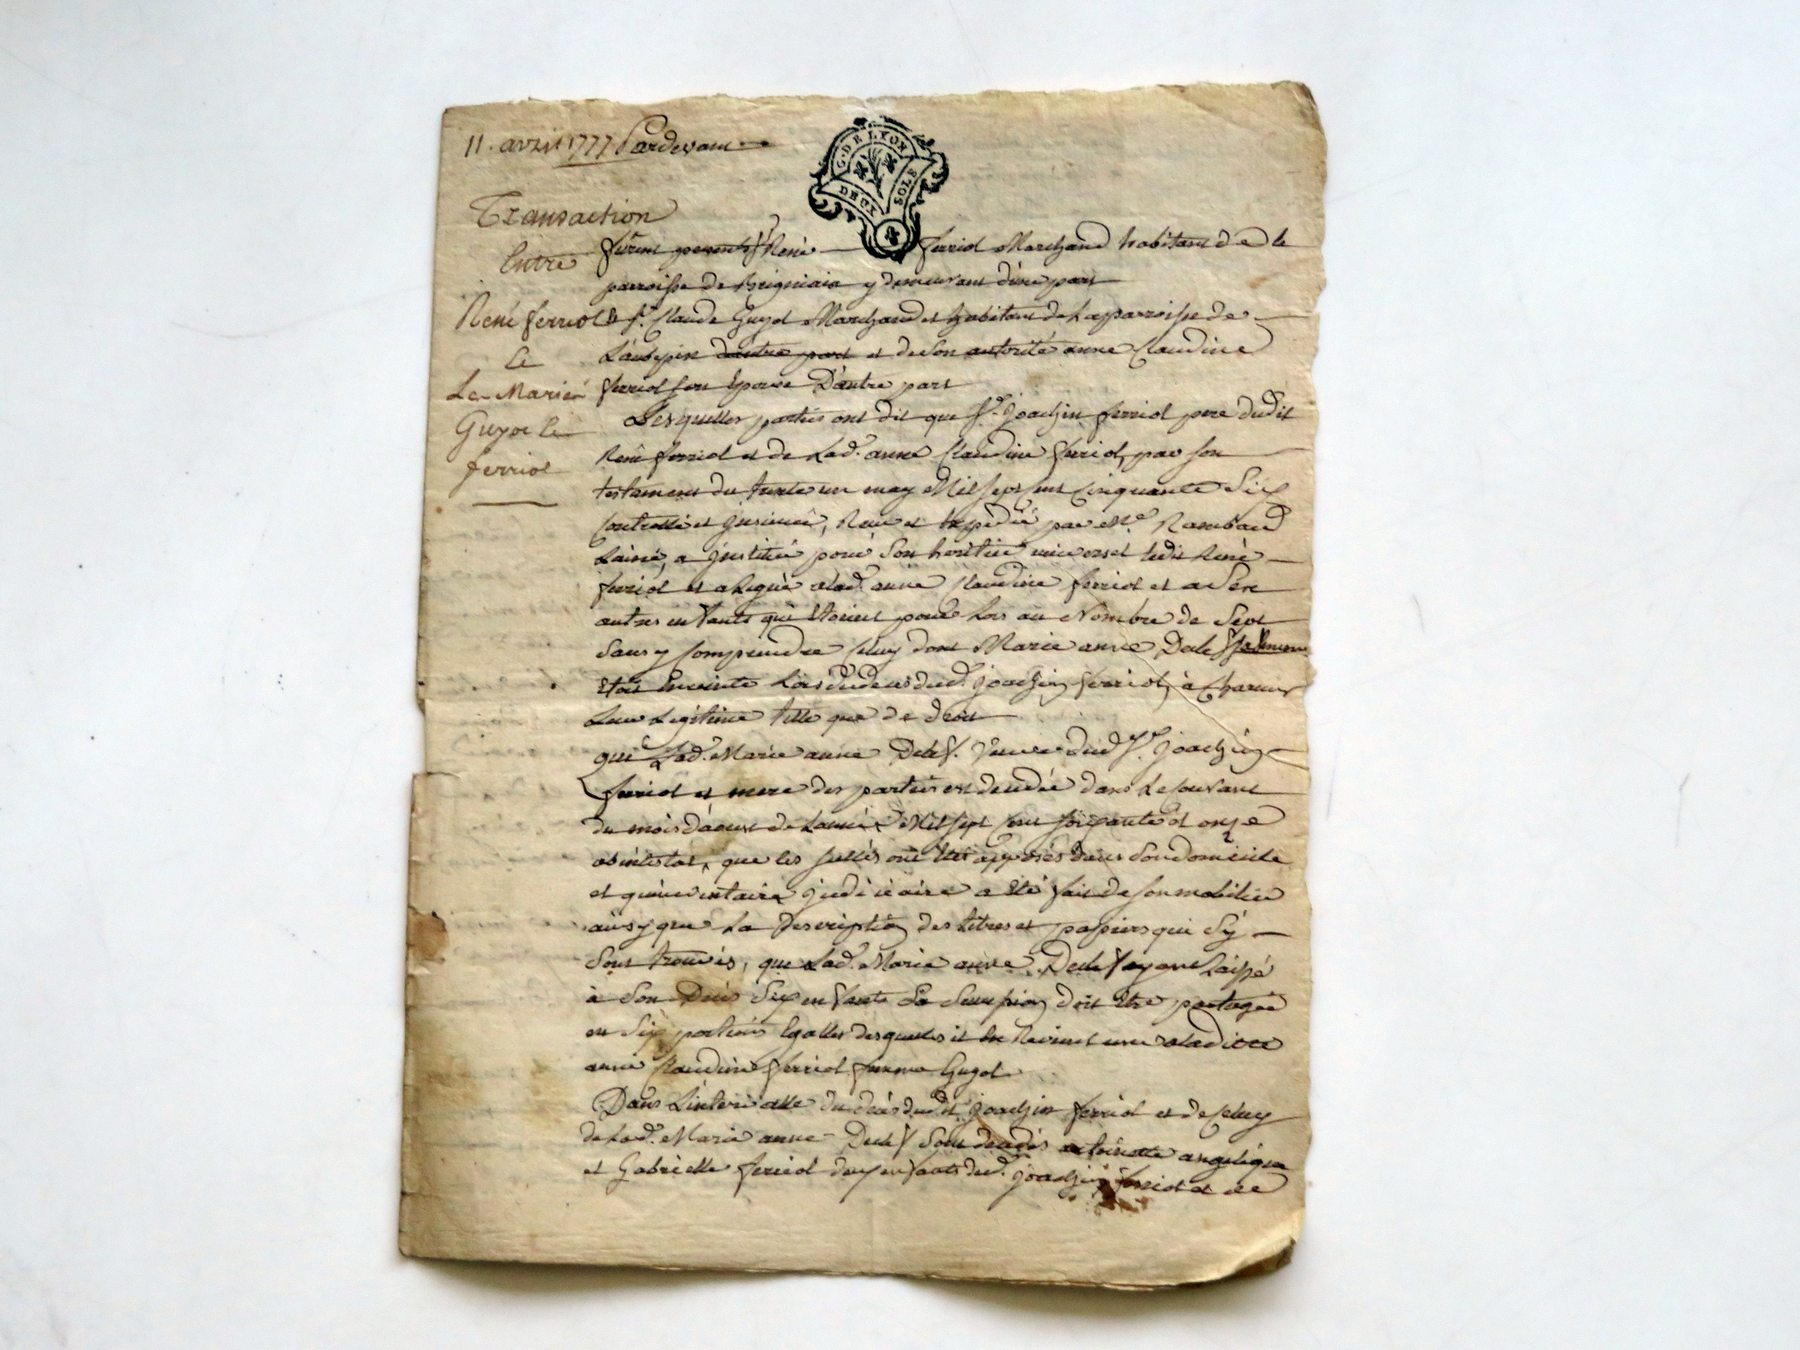 11. avril 1777 Pardevant
G. DE LYON
DEUX SOLS
Transaction
Entre
René ferriol
Et
Les Mariés
Guyot et
ferriol
furent presents Sr René ferriol Marchand habitant de la
parroisse de brigniais y demeurant d'une part
& sr. Claude Guyot Marchand et habitant de La parroisse de
L'aubepin dautre part et de son autorité anne Claudine
ferriol son Epouse D'autre part
Lesquelles parties ont dit que Sr. Joachin ferriol pere dudit
René ferriol et de Lade. anne Claudine ferriol, par son
testament du trente un may Mil sept cent Cinquante Six
Controllé et jnsinué, Reçu et Expedié par Me. Rambaud
Lainé, a jnstitué pour Son heritier universel ledit René
ferriol et a Legué a lad. anne Claudine ferriol et a Ses
autres enfants qui Etoient pour Lors au Nombre de Sept
Sans y Comprendre Celuy dont Marie anne
Etoit Enceinte Lors du deces dud. Joachin ferriol, à Chacun
Leur Legitime telle que de droit
que Lad. Marie anne veuve dud Sr. Joachin
ferriol et mere des parties est decedée dans Le Courant
du mois d'aoust de Lannée Mil sept Cent soixante et onze
abintestat, que les scellés ont Eté apposés dans Son domicile
et qu'inventaire judiciaire a Eté fait de Son mobilier
aussy que La Description des titres et papiers qui S'y
Sont trouvés, que Lad. Marie anne ayant Laissé
à Son Decés Six enfants La Succession doit Etre partagée
en Six portions Egalles desquelles il En Revient une a laditte
anne Claudine ferriol femme Guyot
Dans L'intervalle du decés dudit Joachin ferriol et de Celuy
de Lad. Marie anne Sont decedés antoinette angelique
et Gabrielle ferriol deux enfants dud. Joachin ferriol et de